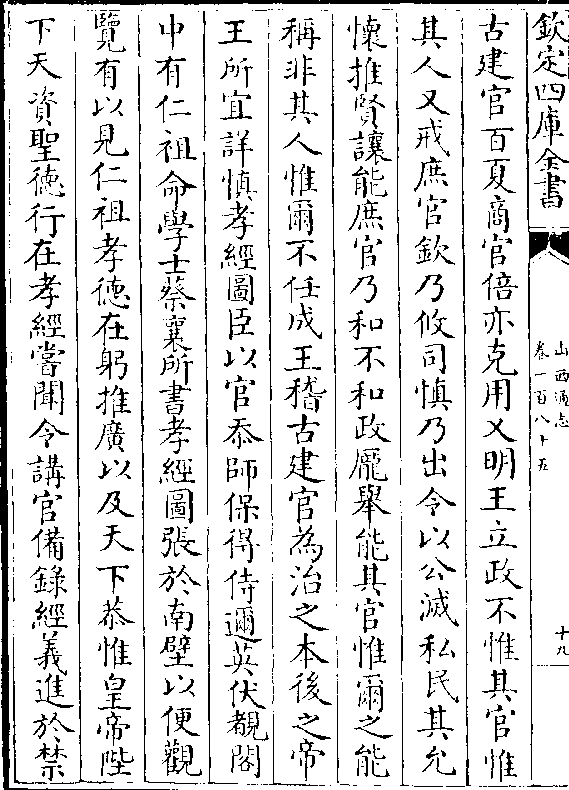 欽定四庫全書
山西通志
卷一百八十五
十九
古建官百夏商官倍亦克用乂明王立政不惟其官惟
其人又戒庶官欽乃攸司慎乃出令以公滅私民其允
懷推賢讓能庶官乃和不和政厖舉能其官惟爾之能
稱非其人惟爾不任成王稽古建官為治之本後之帝
王所宜詳慎孝經圖臣以官忝師保得侍邇英伏覩閣
中有仁祖命學士蔡襄所書孝經圖張於南壁以便觀
覽有以見仁祖孝德在躬推廣以及天下恭惟皇帝陛
下天資聖德行在孝經嘗聞令講官備錄經義進於禁